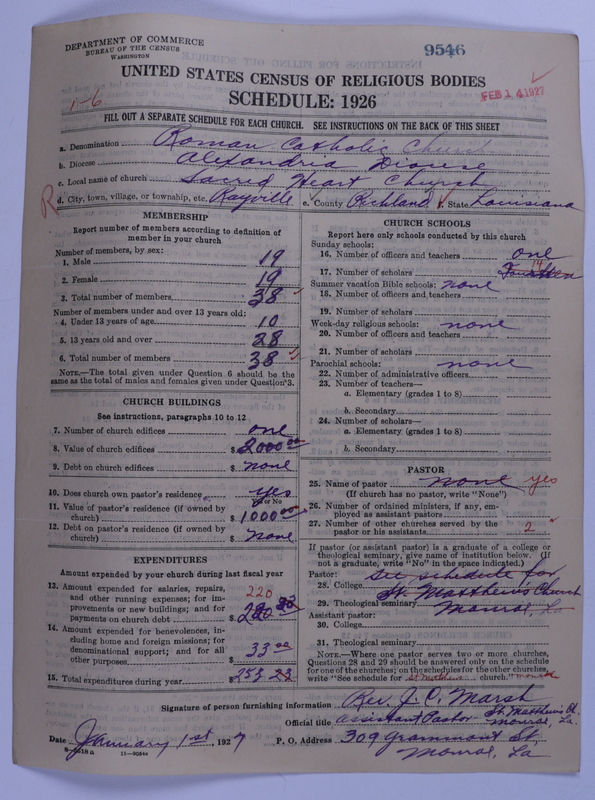 DEPARTMENT OF COMMERCE
BUREAU OF THE CENSUS
WASHINGTON
9546
UNITED STATES CENSUS OF RELIGIOUS BODIES
SCHEDULE: 1926
FEB 14 1927
1-6
FILL OUT A SEPARATE SCHEDULE FOR EACH CHURCH. SEE INSTRUCTIONS ON THE BACK OF THIS SHEET
a. Denomination Roman Catholic Church
b. Diocese Alexandria Diocese
c. Local name of church Sacred Heart Church
R d. City, town, village, or township, etc. Rayville e. County Richland f. State Louisiana
MEMBERSHIP
Report number of members according to definition of
member in your church
Number of members, by sex:
1. Male 19
2. Female 19
3. Total number of members 38
Number of members under and over 13 years old:
4. Under 13 years of age 10
5. 13 years old and over 28
6. Total number of members 38
NOTE.—The total given under Question 6 should be the
same as the total of males and females given under Question 3.
CHURCH BUILDINGS
See instructions, paragraphs 10 to 12
7. Number of church edifices one
8. Value of church edifices $ 2000 00
9. Debt on church edifices $ none
10. Does church own pastor's residence yes
Yes or No
11. Value of pastor's residence (if owned by
church) $ 1000 00
12. Debt on pastor's residence (if owned by
church) $ none
EXPENDITURES
Amount expended by your church during last fiscal year
13. Amount expended for salaries, repairs, 220
and other running expenses; for im-
provements or new buildings; and for
payments on church debt $
14. Amount expended for benevolences, in-
cluding home and foreign missions; for
denominational support; and for all
other purposes $ 33 00
15. Total expenditures during year $ 253
CHURCH SCHOOLS
Report here only schools conducted by this church
Sunday schools:
16. Number of officers and teachers one
17. Number of scholars Fourteen 14
Summer vacation Bible schools: none
18. Number of officers and teachers
19. Number of scholars
Week-day religious schools: none
20. Number of officers and teachers
21. Number of scholars
Parochial schools: none
22. Number of administrative officers
23. Number of teachers—
a. Elementary (grades 1 to 8)
b. Secondary
24. Number of scholars—
a. Elementary (grades 1 to 8)
b. Secondary
PASTOR
25. Name of pastor none yes
(If church has no pastor, write "None")
26. Number of ordained ministers, if any, em-
ployed as assistant pastors
27. Number of other churches served by the
pastor or his assistants 2
If pastor (or assistant pastor) is a graduate of a college or
theological seminary, give name of institution below. (If
not a graduate, write "No" in the space indicated.)
Pastor: See schedule for
28. College St. Matthews Church
29. Theological seminary Monroe, La
Assistant pastor:
30. College
31. Theological seminary
NOTE.—Where one pastor serves two or more churches,
Questions 28 and 29 should be answered only on the schedule
for one of the churches; on the schedules for the other churches,
write "See schedule for St Mathews church." Monroe
Signature of person furnishing information Rev. J. C. Marsh
Official title Assistant Pastor St. Matthews Ch.
Monroe, La.
Date January 1st, 1927 P. O. Address 309 Grammont St,
Monroe, La
8-5518 a 11-9054a